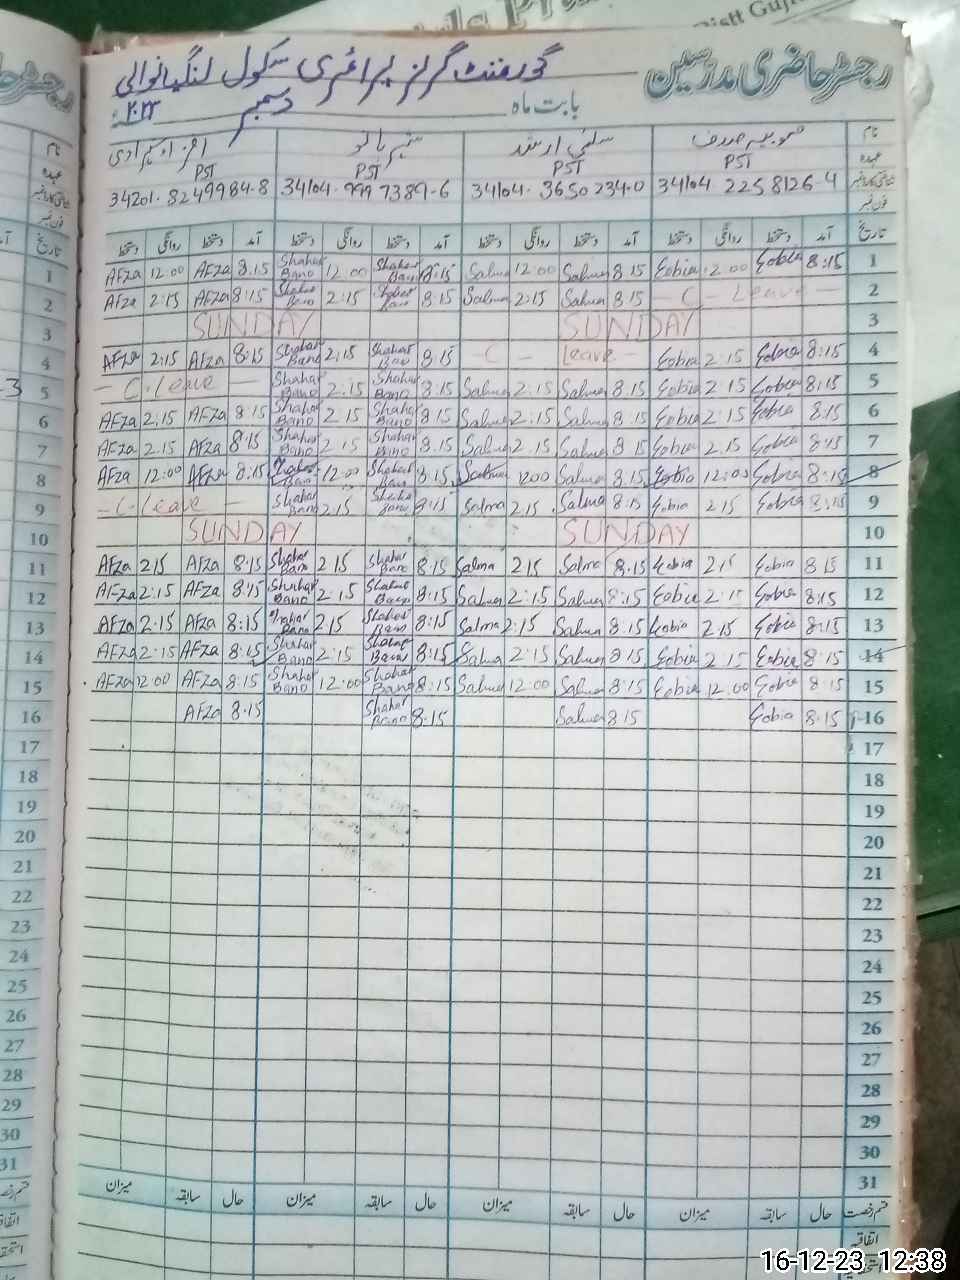 رجسٹر حاضری مدرسین
گورنمنٹ گرلز پرائمری سکول لنگیانوالی
بابت ماہ دسمبر ۲۰۲۳ء
نام
عہدہ PST PST PST PST
شناختی کارڈ نمبر 34104 2258126-4 34104-3650234-0 34104-9997389-6 34201-8249984-8
فون نمبر
تاریخ آمد دستخط روانگی دستخط آمد دستخط روانگی دستخط آمد دستخط روانگی دستخط آمد دستخط روانگی دستخط
AFza 12:00 AFza 8.15 Shahar Bano 12:00 Shahar Bano 8:15 Salma 12:00 Salma 8 15 Eobia 12 00 Eobia 8:15 1
AFza 2:15 AFza 8:15 Shahar Bano 2:15 Shahar Bano 8:15 Salma 2:15 Salma 8 15 — C — Leave — 2
SUNDAY SUNDAY 3
AFza 2:15 AFza 8:15 Shahar Bano 2:15 Shahar Bano 8:15 — C — Leave — Eobia 2:15 Eobia 8:15 4
— C. Leave — Shahar Bano 2:15 Shahar Bano 8:15 Salma 2:15 Salma 8:15 Eobia 2:15 Eobia 8:15 5
AFza 2:15 AFza 8 15 Shahar Bano 2 15 Shahar Bano 8 15 Salma 2:15 Salma 8.15 Eobia 2 15 Eobia 8.15 6
AFza 2.15 AFza 8:15 Shahar Bano 2 15 Shahar Bano 8.15 Salma 2.15 Salma 8 15 Eobia 2.15 Eobia 8:15 7
AFza 12:00 AFza 8.15 Shahar Bano 12:00 Shahar Bano 8.15 Salma 12:00 Salma 8.15 Eobia 12:00 Eobia 8:15 8
— C. Leave — Shahar Bano 2:15 Shahar Bano 8:15 Salma 2:15 Salma 8:15 Eobia 2 15 Eobia 8:15 9
SUNDAY SUNDAY 10
AFza 2 15 AFza 8.15 Shahar Bano 2 15 Shahar Bano 8:15 Salma 2 15 Salma 8.15 Eobia 2 15 Eobia 8 15 11
AFza 2:15 AFza 8:15 Shahar Bano 2 15 Shahar Bano 8:15 Salma 2:15 Salma 8:15 Eobia 2:15 Eobia 8:15 12
AFza 2.15 AFza 8:15 Shahar Bano 2 15 Shahar Bano 8:15 Salma 2:15 Salma 8:15 Eobia 2.15 Eobia 8:15 13
AFza 2.15 AFza 8:15 Shahar Bano 2:15 Shahar Bano 8:15 Salma 2:15 Salma 8 15 Eobia 2 15 Eobia 8:15 14
AFza 12:00 AFza 8:15 Shahar Bano 12:00 Shahar Bano 8:15 Salma 12:00 Salma 8:15 Eobia 12.00 Eobia 8:15 15
AFza 8:15 Shahar Bano 8.15 Salma 8 15 Eobia 8.15 16
17
18
19
20
21
22
23
24
25
26
27
28
29
30
31
قسم رخصت حال سابقہ میزان حال سابقہ میزان حال سابقہ میزان حال سابقہ میزان
اتفاقیہ
16-12-23 12:38